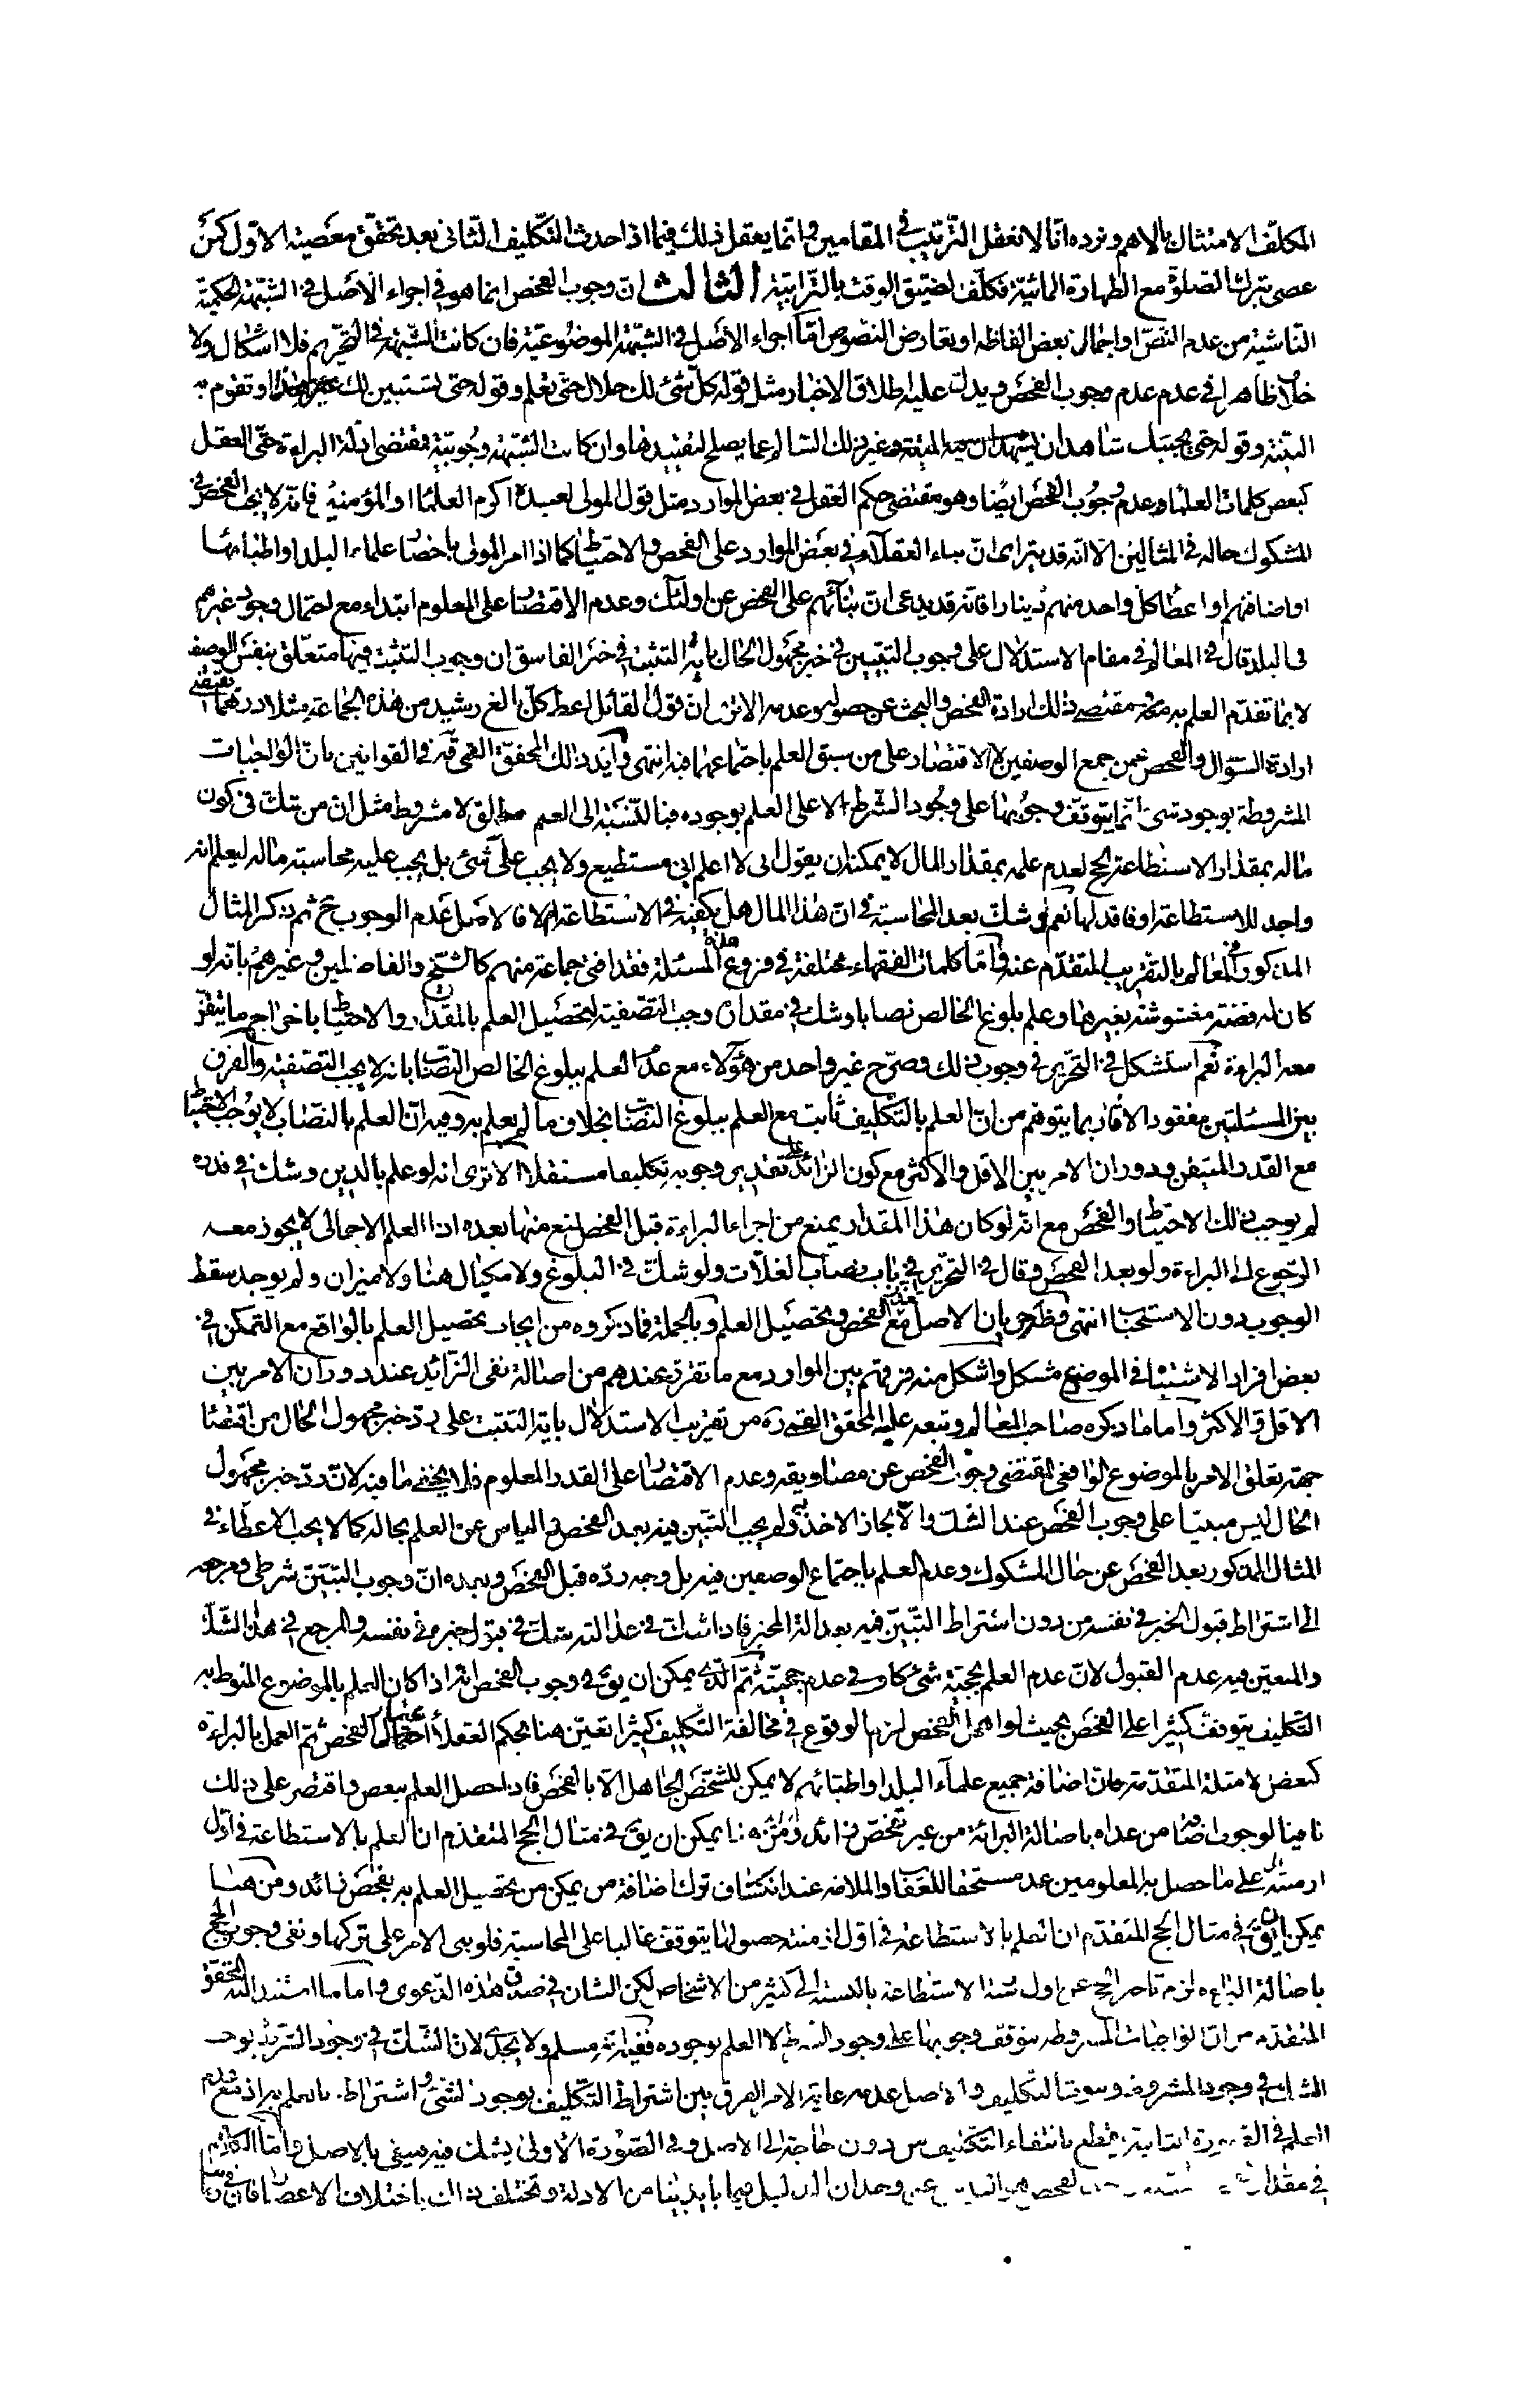 المكلف الامتثال بالاهم ونرده انا لا نعقل الترتيب في المقامين وانما يعقل ذلك فيما اذا حدث التكليف الثاني بعد تحقق معصية الاول كمن
عصى بترك الصلوة مع الطهارة المائية فكلف لضيق الوقت بالترابية الثالث ان وجوب الفحص انما هو في اجراء الاصل في الشبهة الحكمية
الناشئة من عدم النص او اجمال بعض الفاظه او تعارض النصوص اما اجراء الاصل في الشبهة الموضوعية فان كانت الشبهة في التحريم فلا اشكال ولا
خلاف ظاهرا في عدم عدم وجوب الفحص ويدل عليه اطلاق الاخبار مثل قوله كل شئ لك حلال حتى تعلم وقوله حتى تستبين لك غير هذا او تقوم به
البينة وقوله حتى يجيئك شاهدان يشهدان ان فيه الميتة وغير ذلك السالم عما يصلح لتقييدها وان كانت الشبهة وجوبية فمقتضى ادلة البراءة حتى العقل
كبعض كلمات العلماء عدم وجوب الفحص ايضا وهو مقتضى حكم العقل في بعض الموارد مثل قول المولى لعبده اكرم العلماء او المؤمنين فانه لا يجب الفحص في
المشكوك حاله في المثالين الا انه قد يترائى ان بناء العقلاء في بعض الموارد على الفحص والاحتياط كما اذا امر المولى باحضار علماء البلد او اطبائها
او اضافتهم او اعطاء كل واحد منهم دينارا فانه قد يدعى ان بنائهم على الفحص عن اولئك وعدم الاقتصار على المعلوم ابتداء مع احتمال وجود غيرهم
في البلد قال في المعالم في مقام الاستدلال على وجوب التبيين في خبر مجهول الحال باية التثبت في خبر الفاسق ان وجوب التثبت فيها متعلق بنفس الوصف
لا بما تقدم العلم به منه ومقتضى ذلك ارادة الفحص والبحث عن حصوله وعدمه الا ترى ان قول القائل اعط كل بالغ رشيد من هذه الجماعة مثلا درهما يقتضي
ارادة السؤال والفحص عمن جمع الوصفين لا الاقتصار على من سبق العلم باجتماعهما فيه انتهى وايد ذلك المحقق القمي ره في القوانين بان الواجبات
المشروطة بوجود شئ انما يتوقف وجوبها على وجود الشرط لا على العلم بوجوده فبالنسبة الى العلم مطلق لا مشروط مثل ان من شك في كون
ماله بمقدار الاستطاعة الحج لعدم علمه بمقدار المال لا يمكنه ان يقول اني لا اعلم اني مستطيع ولا يجب علي شئ بل يجب عليه محاسبة ماله ليعلم انه
واجد للاستطاعة او فاقد لها نعم لو شك بعد المحاسبة في ان هذا المال هل يكفيه في الاستطاعة ام لا فالاصل عدم الوجوب ح ثم ذكر المثال
المذكور في المعالم بالتقريب المتقدم عنه واما كلمات الفقهاء مختلفة في فروع هذه المسئلة فقد افتى جماعة منهم كالشيخ والفاضلين وغيرهم بانه لو
كان له فضة مغشوشة بغيرها وعلم بلوغ الخالص نصابا وشك في مقداره وجب التصفية لتحصيل العلم بالمقدار والاحتياط باخراج ما تيقن
معه البراءة نعم استشكل في التحرير في وجوب ذلك وصرح غير واحد من هؤلاء مع عدم العلم ببلوغ الخالص النصاب بانه لا يجب التصفية والفرق
بين المسئلتين مفقود الا فان بما يتوهم من ان العلم بالتكليف ثابت مع العلم ببلوغ النصاب بخلاف ما لم يعلم به وفيه ان العلم بالنصاب لا يوجب الاحتياط
مع القدر المتيقن ودوران الامر بين الاقل والاكثر مع كون الزائد على تقدير وجوبه تكليفا مستقلا الا ترى انه لو علم بالدين وشك في قدره
لم يوجب ذلك الاحتياط والفحص مع انه لو كان هذا المقدار يمنع من اجراء البراءة قبل الفحص لمنع منها بعده اذ العلم الاجمالي لا يجوز معه
الرجوع الى البراءة ولو بعد الفحص وقال في التحرير في باب نصاب الغلات ولو شك في البلوغ ولا مكيال هنا ولا ميزان ولم يوجد سقط
الوجوب دون الاستحباب انتهى وظاهره جريان الاصل مع تعذر الفحص وتحصيل العلم وبالجملة فما ذكروه من ايجاب تحصيل العلم بالواقع مع التمكن في
بعض افراد الاشتباه في الموضوع مشكل واشكل منه فرقهم بين الموارد مع ما تقرر عندهم من اصالة نفى الزائد عند دوران الامر بين
الاقل والاكثر واما ما ذكره صاحب المعالم وتبعه عليه المحقق القمي ره من تقريب الاستدلال باية التثبت على رد خبر مجهول الحال من اقتضاء
جهة تعلق الامر بالموضوع الواقعي المقتضى وجوب الفحص عن مصاديقه وعدم الاقتصار على القدر المعلوم فلا يخفى ما فيه لان رد خبر مجهول
الحال ليس مبنيا على وجوب الفحص عند الشك والا لجاز الاخذ به ولم يجب التبين فيه بعد الفحص والياس عن العلم بحاله كما لا يجب الاعطاء في
المثال المذكور بعد الفحص عن حال المشكوك وعدم العلم باجتماع الوصفين فيه بل وجه رده قبل الفحص وبعده ان وجوب التبين شرطي ومرجعه
الى اشتراط قبول الخبر في نفسه من دون اشتراط التبين فيه بعدالة المخبر فاذا شك في عدالته شك في قبول خبره في نفسه والمرجع في هذا الشك
والمتعين فيه عدم القبول لان عدم العلم بحجية شئ كاف في عدم حجيته ثم الذي يمكن ان يق في وجوب الفحص انه اذا كان العلم بالموضوع المنوط به
التكليف يتوقف كثيرا على الفحص بحيث لو اهمل الفحص لزم الوقوع في مخالفة التكليف كثيرا تعين هنا بحكم العقلاء اعتبار الفحص ثم العمل بالبراءة
كبعض الامثلة المتقدمة فان اضافة جميع علماء البلد او اطبائهم لا يمكن للشخص الجاهل الا بالفحص فاذا حصل العلم ببعض واقتصر على ذلك
نافيا لوجوب اضافة من عداه باصالة البرائة من غير تفحص زائد
على ما حصل به المعلومين عد مستحقا للعقاب والملامة عند انكشاف ترك اضافة من يمكن من تحصيل العلم به بفحص زائد ومن هنا
يمكن ان يق في مثال الحج المتقدم ان العلم بالاستطاعة في اول ازمنة حصولها يتوقف غالبا على المحاسبة فلو بنى الامر على تركها ونفى وجوب الحج
باصالة البراءة لزم تاخير الحج عن اول سنة الاستطاعة بالنسبة الى كثير من الاشخاص لكن الشان في صدق هذه الدعوى واما ما استند اليه المحقق
المتقدم من ان الواجبات المشروطة يتوقف وجوبها على وجود الشرط لا العلم بوجوده ففيه انه مسلم ولا يجدي لان الشك في وجود الشرط يوجب
الشك في وجود المشروط وثبوت التكليف والاصل عدمه غاية الامر الفرق بين اشتراط التكليف بوجود الشئ واشتراطه بالعلم به اذ مع عدم
العلم في الصورة الثانية يقطع بانتفاء التكليف من دون حاجة الى الاصل وفي الصورة الاولى يشك فيه فينفى بالاصل واما الكلام
في مقدار الفحص وحدان الدليل فيما بايدينا من الادلة ويختلف ذلك باختلاف الاعصار فان في